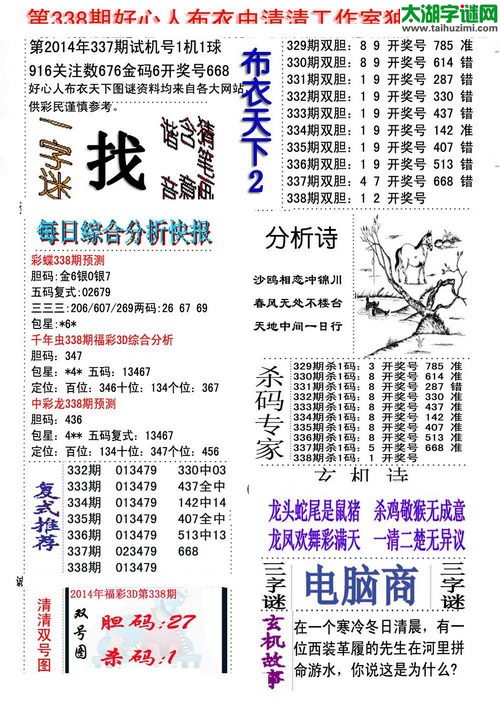 太湖字谜网
www.taihuzimi.com
第338期好心人布衣中清清工作室独
第2014年337期试机号1机1球
916关注数676金码6开奖号668
好心人布衣天下图谜资料均来自各大网站，
供彩民谨慎参考。
一字迷
找
每日综合分析快报
彩蝶338期预测
胆码：金6银0银7
五码复式:02679
三三三:206/607/269两码:26 67 69
包星:*6*
千年虫338期福彩3D综合分析
胆码: 347
包星: *4* 五码: 13467
定位: 百位: 346十位: 134个位: 367
中彩龙338期预测
胆码: 436
包星: 4** 五码复式: 13467
定位: 百位: 134十位: 347个位: 456
复式推荐
332期 013479 330中03
333期 013479 437全中
334期 013479 142中14
335期 013479 407全中
336期 013479 513中13
337期 023479 668
338期 013479
清清双号图
2014年福彩3D第338期
双号图
胆码:27
杀码:1
布衣天下2
329期双胆: 8 9 开奖号 785 准
330期双胆: 8 9 开奖号 614 错
331期双胆: 1 9 开奖号 287 错
332期双胆: 1 9 开奖号 330 错
333期双胆: 1 9 开奖号 437 错
334期双胆: 1 9 开奖号 142 准
335期双胆: 1 9 开奖号 407 错
336期双胆: 1 9 开奖号 513 错
337期双胆: 4 7 开奖号 668 错
338期双胆: 1 2 开奖号
分析诗
沙鸥相恋冲锦川
春风无处不楼台
天地中间一日行
杀码专家
329期杀1码: 3 开奖号 785 准
330期杀1码: 8 开奖号 614 准
331期杀1码: 8 开奖号 287 错
332期杀1码: 8 开奖号 330 准
333期杀1码: 8 开奖号 437 准
334期杀1码: 8 开奖号 142 准
335期杀1码: 8 开奖号 407 准
336期杀1码: 8 开奖号 513 准
337期杀1码: 5 开奖号 668 准
338期杀1码: 1 开奖号
玄机诗
龙头蛇尾是鼠猪 杀鸡敬猴无成意
龙凤欢舞彩满天 一清二楚无异议
三字谜
电脑商
三字谜
玄机故事
在一个寒冷冬日清晨，有一
位西装革履的先生在河里拼
命游水，你说这是为什么?